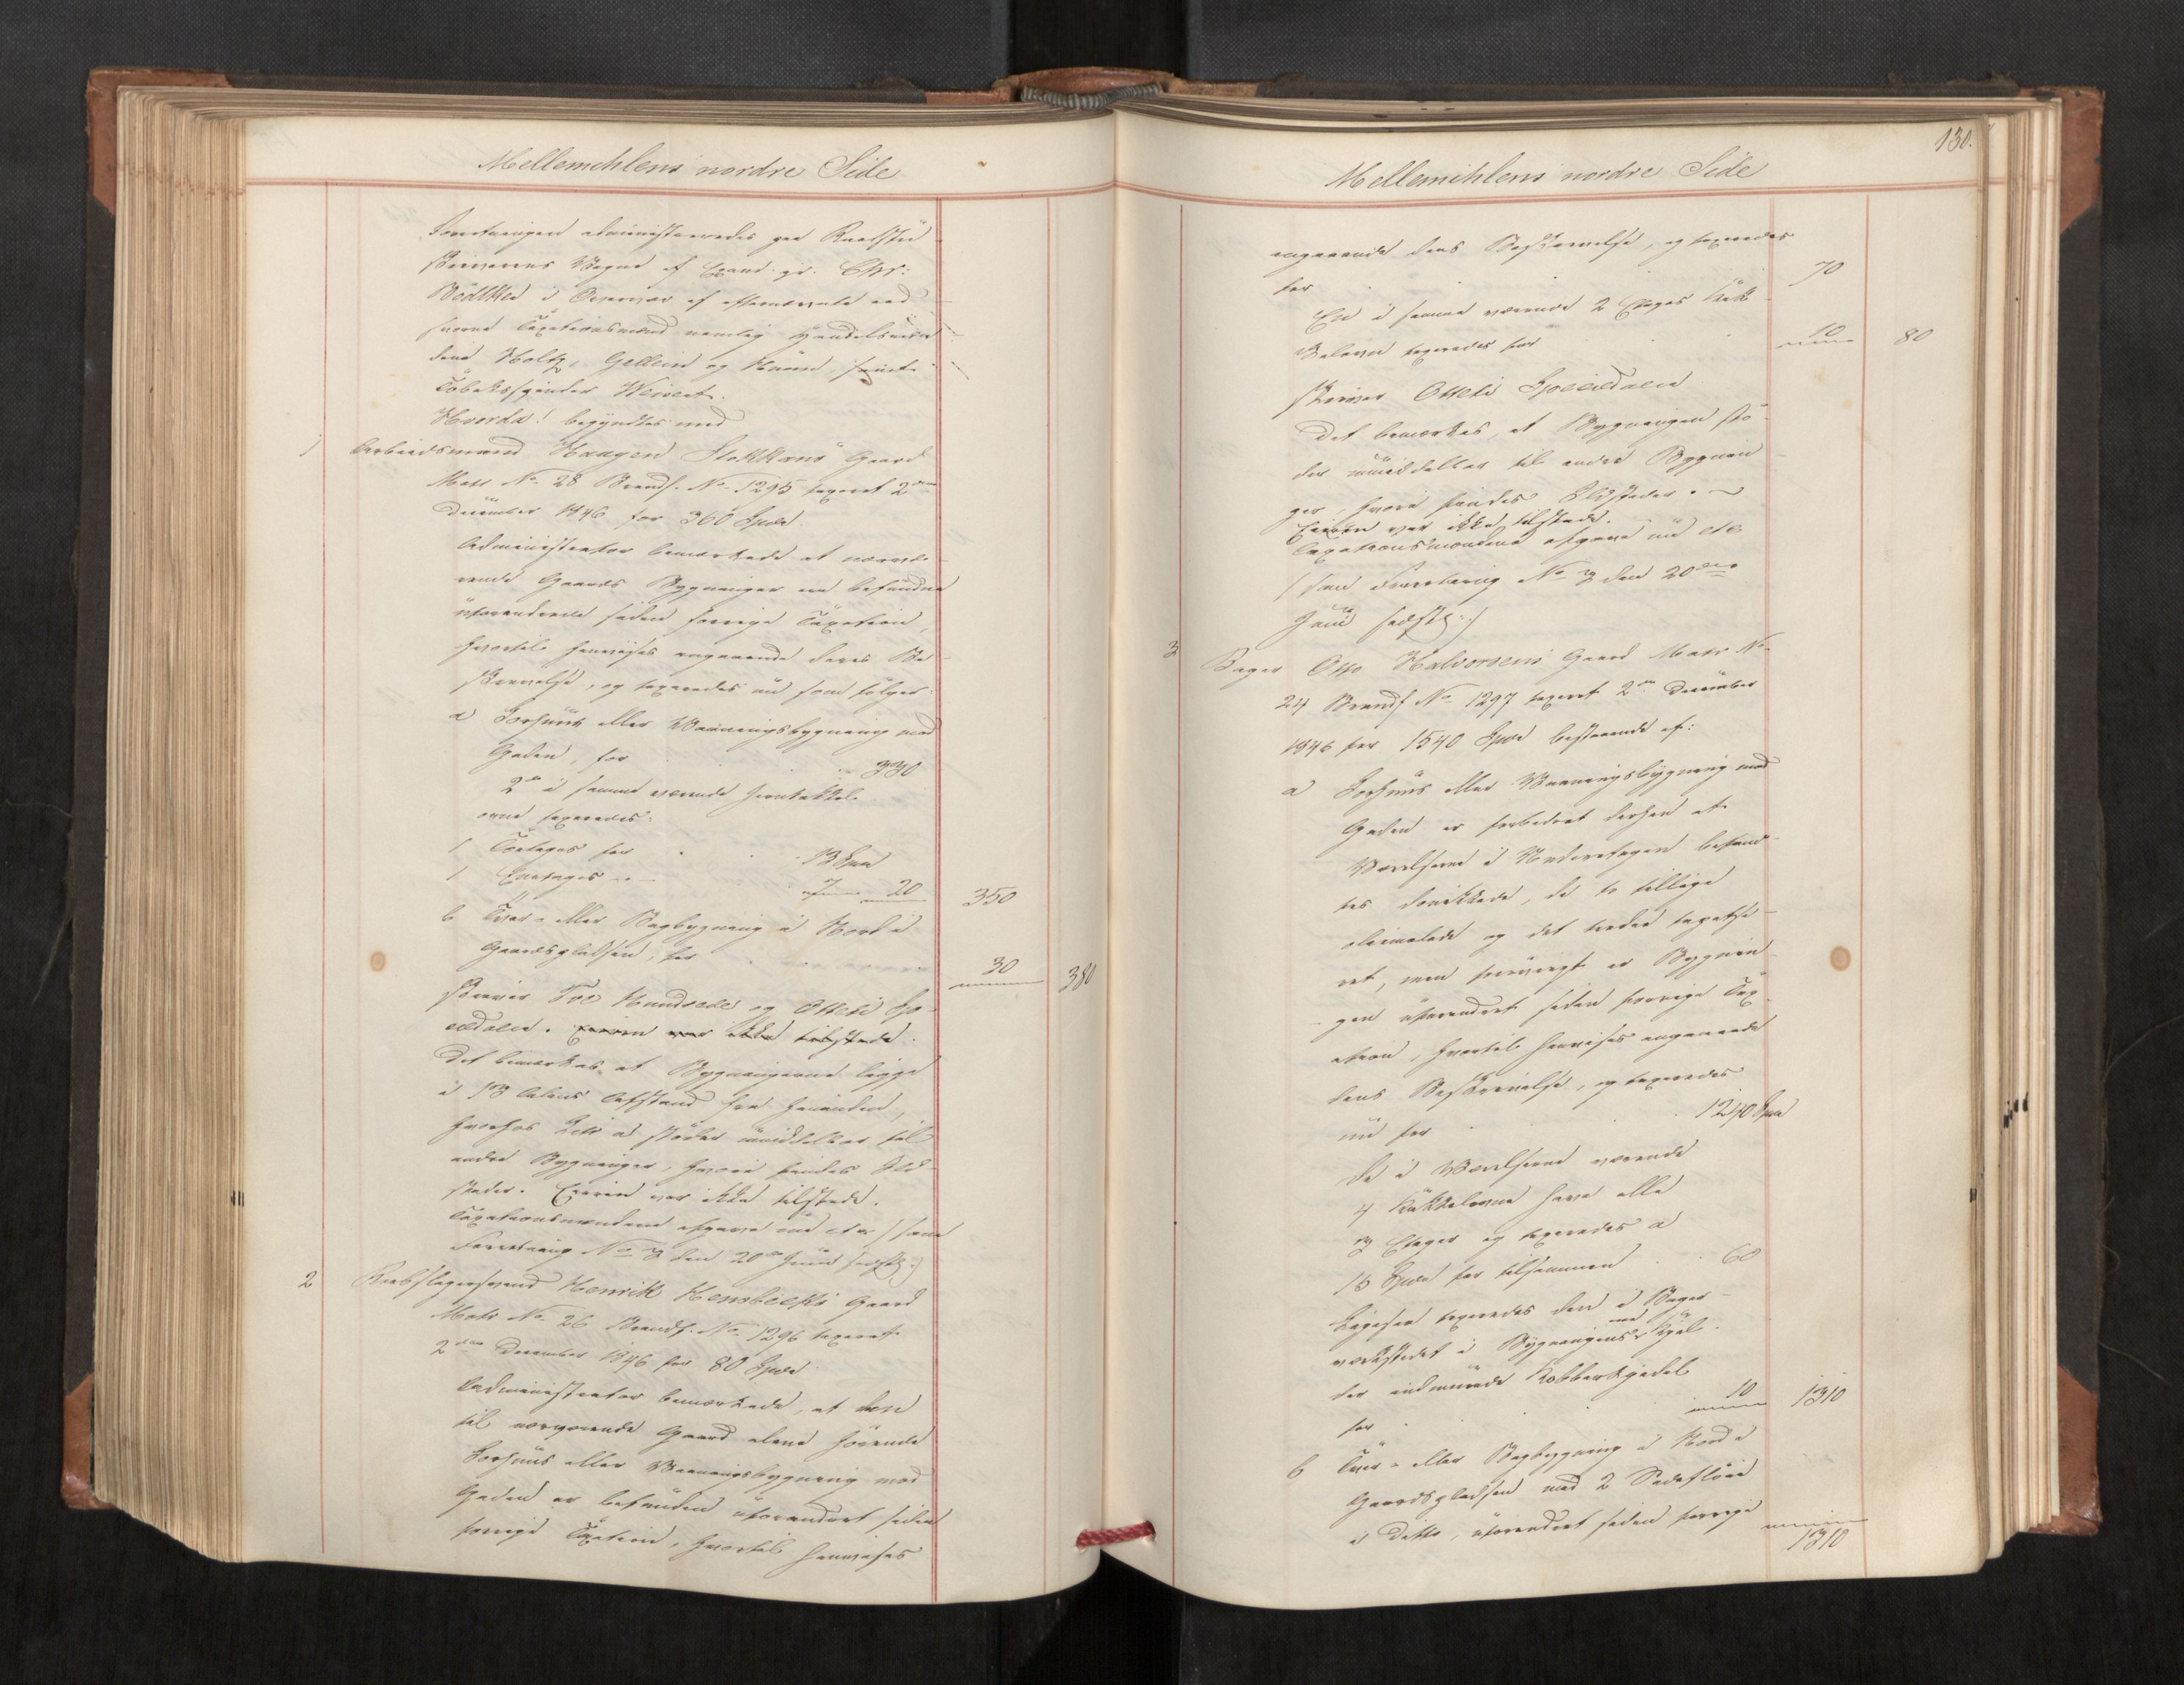 Mellemihlens nordre Side
Forretningen administreredes paa Raadstu
skriverens Vegne af Cand. jur. Chr:
Bödtker i Overvær af efternævnte ed
svorne Taxationsmænd nemlig Handelsmæn
dene Holtz, Gellein og samt
Tobaksspinder
Hvorda! begyndtes med
1 Arbeidsmand Haagen Stokkans Gaard
Matr No. 28 Brandf. No. 1295 taxeret 2den
December 1846 for 360 Spd
Administrator bemærkede at nærvæ
rende Gaards Bygninger ere befundne
uforandrede siden forrige Taxation,
hvortil henvises angaaende deres Be
skrivelse, og taxeredes nu som følger:
a Forhuus eller Vaaningsbygning mod
Gaden, for 330
2de i samme værende Jernkakkel
ovne taxeredes:
1 Toetages for 13 Spd
1 Eenetages — 7 20 350
b Tver- eller Bagbygning i Nord i
Gaardspladsen, for 30 380
skriver Toe Hundsede og Otteti Sp
eciedaler. Eieren var ikke tilstede.
Det bemærkes at Bygningerne ligge
i 13 Alens Afstand fra hinanden,
hvorhos Litr a støder umiddelbar til
andre Bygninger, hvori findes Ild
steder. Eieren var ikke tilstede.
Taxationsmændene afgave nu etc. (som
Forretning No 3 den 20de Juni sidstl:)
2 Rebslagersvend Henrik Hembecks Gaard
Matr No. 26 Brandf. No. 1296 taxeret
2den December 1846 for 80 Spd
Administrator bemærkede, at den
til nærværende Gaard alene hørende
Forhuus eller Vaaningsbygning mod
Gaden er befunden uforandret siden
forrige Taxation, hvortil henvises
130.
Mellemihlens nordre Side
angaaende dens Beskrivelse, og taxeredes
for 70
En i samme værende 2 Etages Kak
kelovn taxeredes for 10 80
skriver Otteti Speciedaler
Det bemærkes, at Bygningen stø
der umiddelbar til andre Bygnin
ger, hvori findes Ildsteder. —
Eieren var ikke tilstede.
Taxationsmændene afgave nu etc
(som Forretning No 3 den 20de
Juni sidstl:)
3 Bager Otto Halvorsens Gaard Matr No.
24 Brandf No 1297 taxeret 2den December
1846 for 1540 Spd bestaaende af:
a Forhuus eller Vaaningsbygning mod
Gaden er forbedret derhen at
Værelserne i Underetagen befand
tes de to tillige
oliemalede og det tredie tapetse
ret, men forøvrigt er Bygnin
gen uforandret siden forrige Tax
ation, hvortil henvises angaaende
dens Beskrivelse, og taxeredes
nu for 1240 Spd
De i Værelserne værende
4 Kakkelovne have alle
3 Etager og taxeredes a
15 Spd for tilsammen 60
Ligesaa taxeredes den i Bager
værkstedet i Bygningens Kjæl
der indmurede Kobberkjedel
for 10 1310
b Tver- eller Bagbygning i Nord i
Gaardspladsen med 2 Sidefløie
i Ditto, uforandret siden forrige
1310